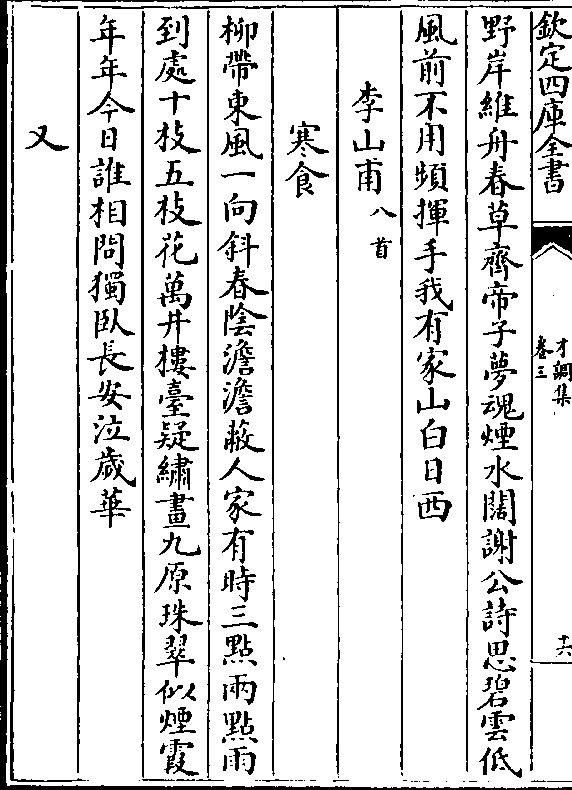 欽定四庫全書
才調集
卷三
十六
野岸維舟春草齊帝子夢魂煙水闊謝公詩思碧雲低
風前不用頻揮手我有家山白日西
李山甫八首
寒食
柳帶東風一向斜春陰澹澹蔽人家有時三點兩點雨
到處十枝五枝花萬井樓臺疑繡畫九原珠翠似煙霞
年年今日誰相問獨臥長安泣歲華
又